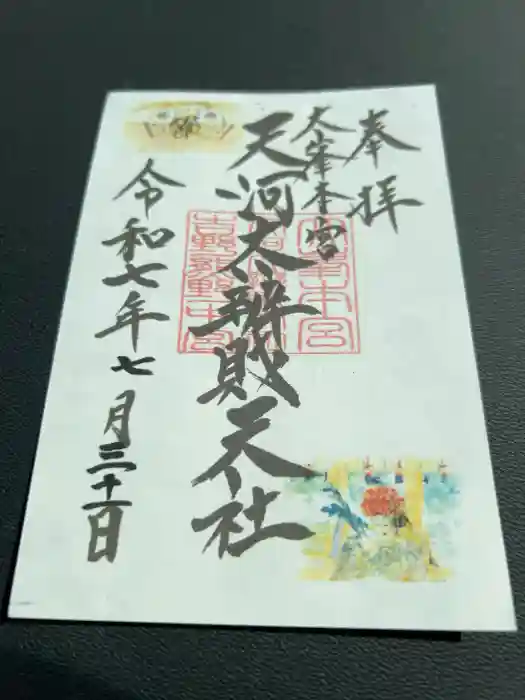 奉拝
大峯本宮
天河大辨財天社
令和七年七月三十一日